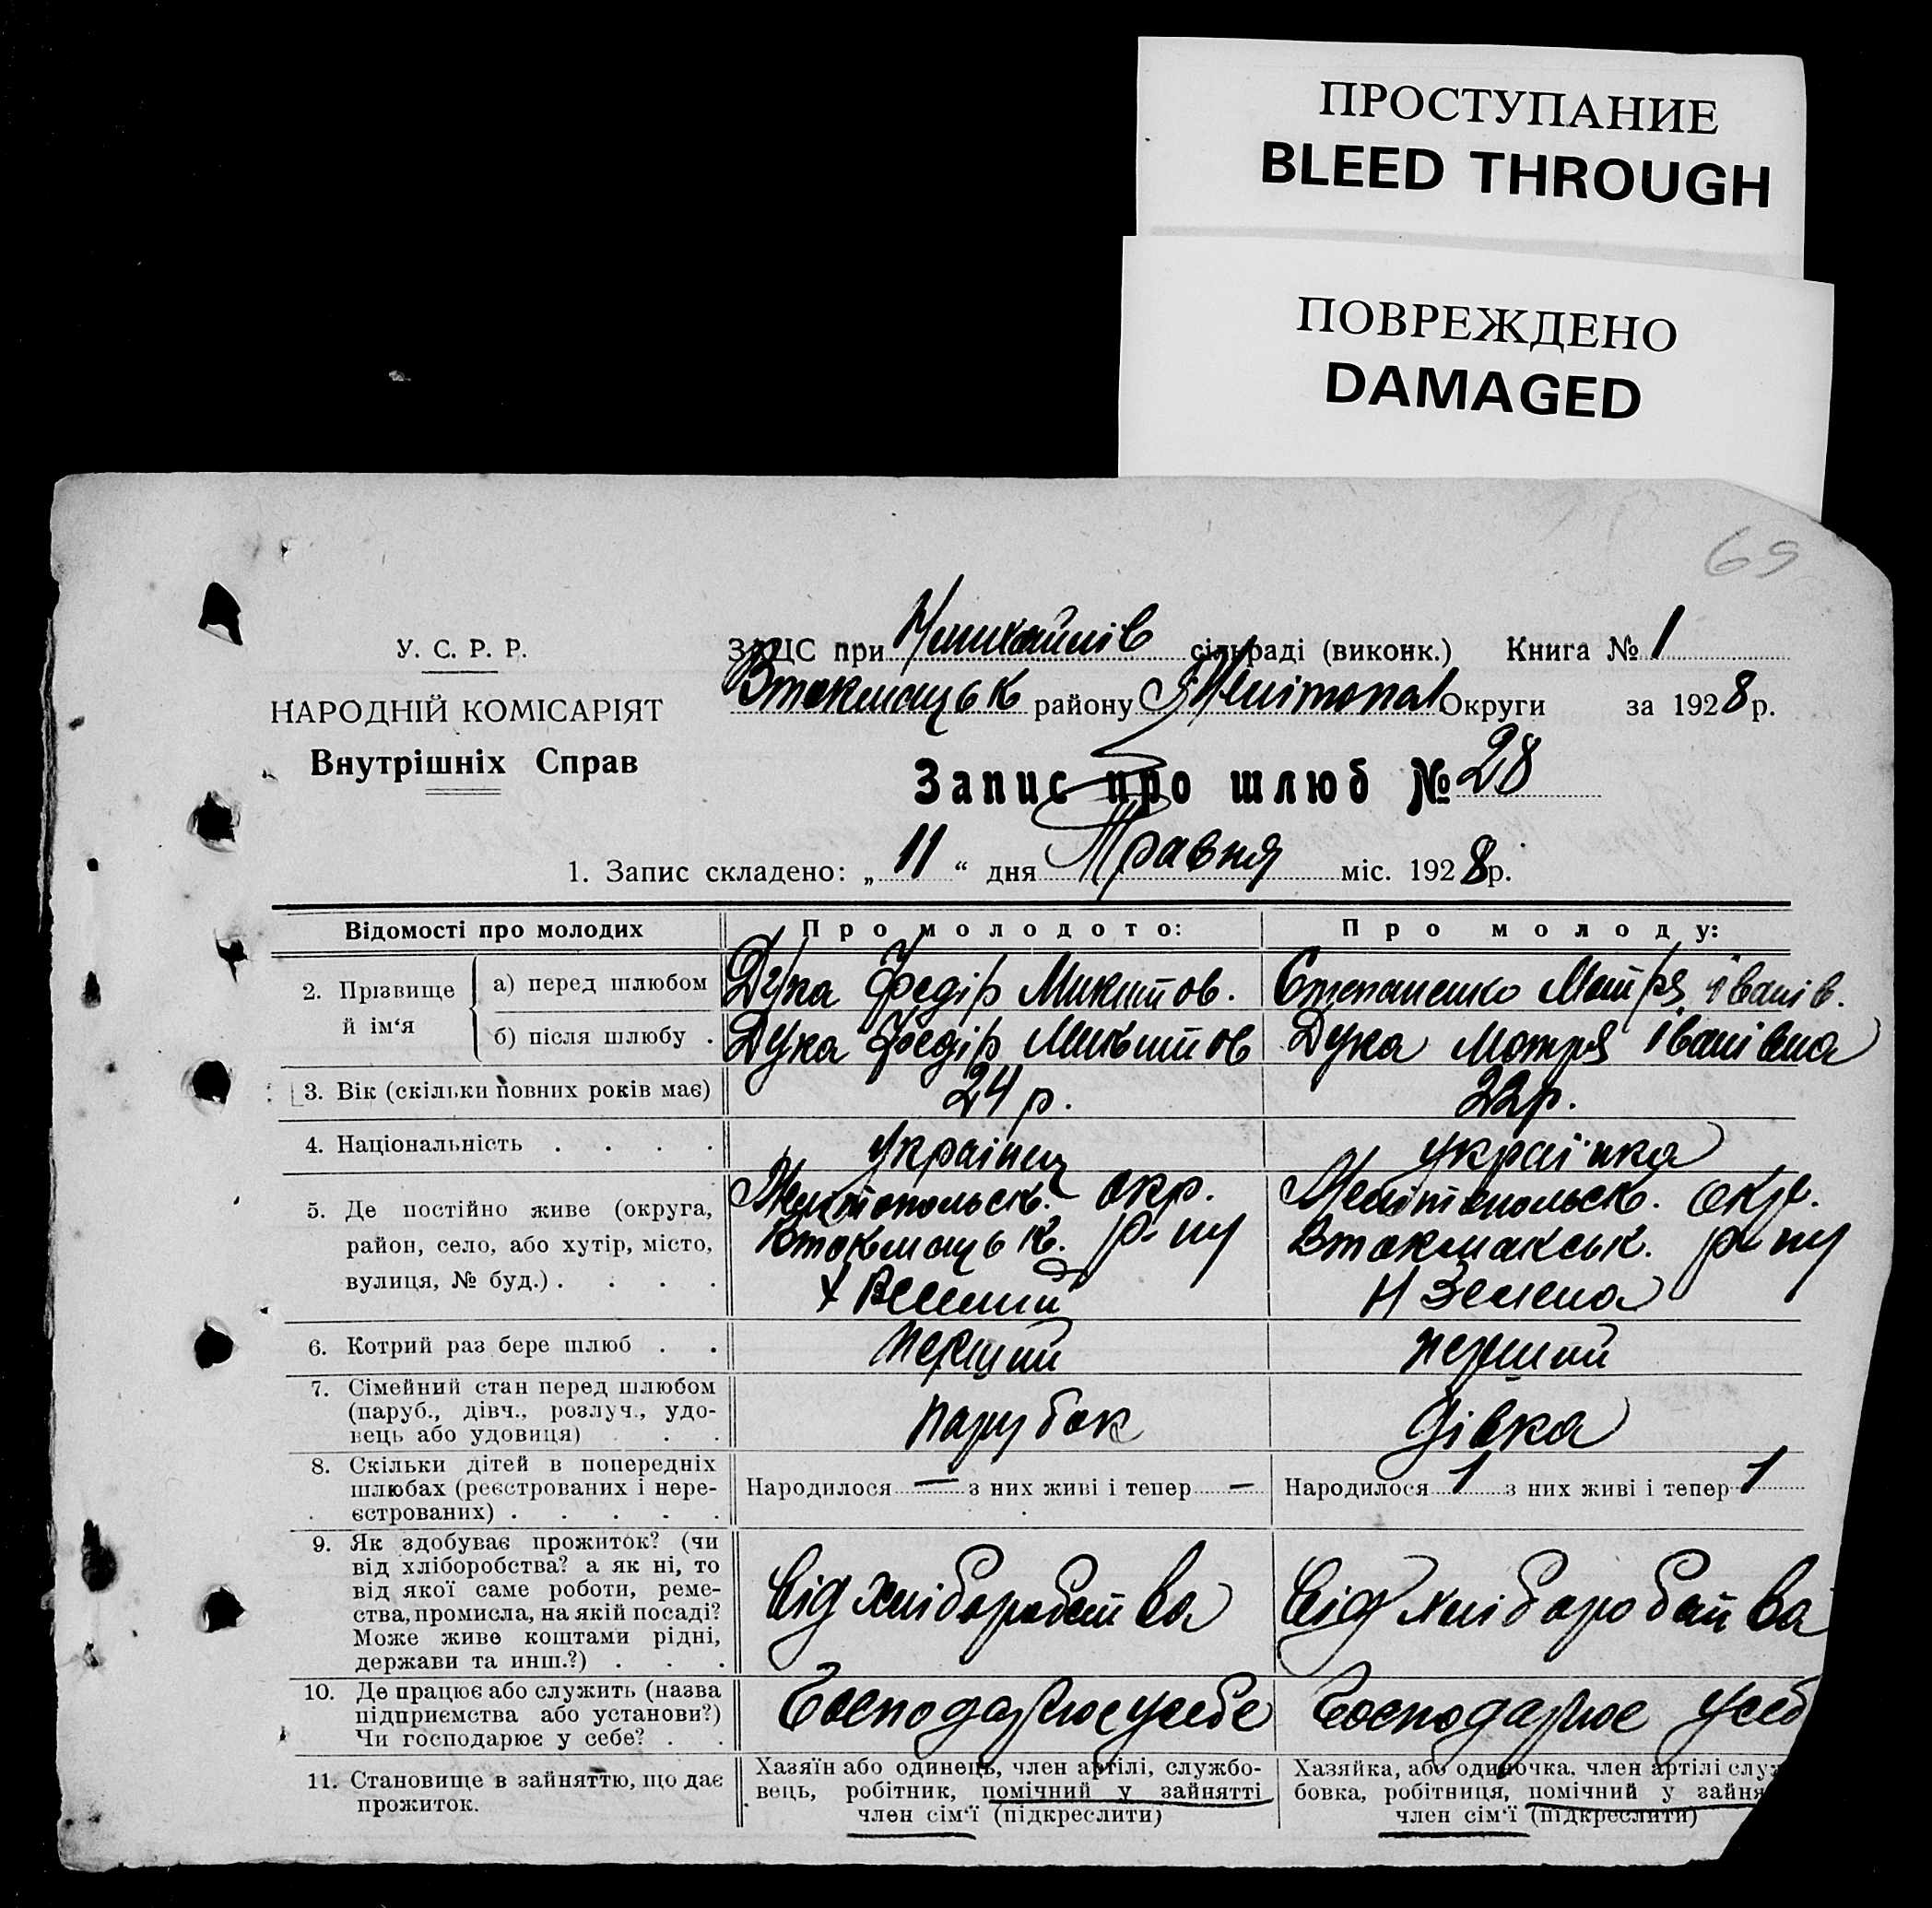 ПРОСТУПАНИЕ
BLEED THROUGH
ПОВРЕЖДЕНО
DAMAGED
69
У. С. Р. Р.
НАРОДНІЙ КОМІСАРІЯТ
Внутрішніх Справ
ЗАЦС при сільраді (виконк.) Книга № 1
Втокмацьк району Мелітопол Округи за 1928 р.
Запис про шлюб № 28
1. Запис складено: „ 11 “ дня Травня міс. 1928 р.
Відомості про молодих
Про молодого:
Про молоду:
2. Прізвище й ім‘я
а) перед шлюбом
Дука Федір Микитов.
Степаненко Мотря Іванів.
б) після шлюбу .
Дука Федір Микитов
Дука Мотря Іванівна
3. Вік (скільки повних років має)
24 р.
22 р.
4. Національність . . . .
Українец
Українка
5. Де постійно живе (округа,
район, село, або хутір, місто,
вулиця, № буд.) . . . .
Мелітопольськ. окр.
Втокмацьк. р-ну
х Веселий
Мелітопольськ. окр.
Втокмакськ. р-ну
Н Зелена
6. Котрий раз бере шлюб . .
перший
перший
7. Сімейний стан перед шлюбом
(паруб., дівч., розлуч., удо-
вець або удовиця) . . .
парубок
дівка
8. Скільки дітей в попередніх
шлюбах (реєстрованих і нере-
єстрованих) . . . . .
Народилося — з них живі і тепер —
Народилося 1 з них живі і тепер 1
9. Як здобуває прожиток? (чи
від хліборобства? а як ні, то
від якої саме роботи, реме-
ства, промисла, на якій посаді?
Може живе коштами рідні,
держави та инш.?) . . .
Від хліборобства
Від хліборобства
10. Де працює або служить (назва
підприємства або установи?)
Чи господарює у себе? . .
Господарює у себе
Господарює усеб
11. Становище в зайняттю, що дає
прожиток.
Хазяїн або одинець, член артілі, службо-
вець, робітник, помічний у зайнятті
член сім‘ї (підкреслити)
Хазяйка, або одиночка, член артілі служ
бовка, робітниця, помічний у зайня
член сім‘ї (підкреслити)